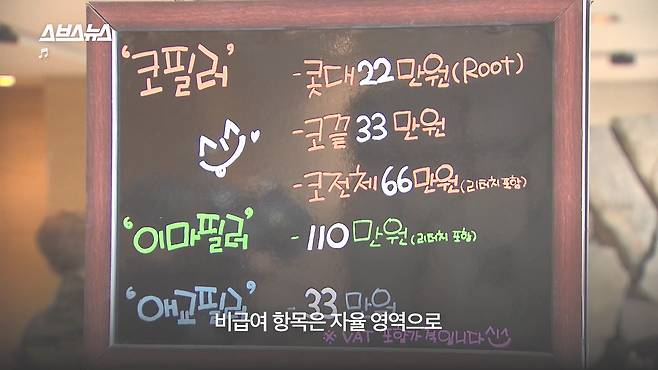 스브스뉴스
'코필러' - 콧대 22만원 (Root)
- 코끝 33만원
- 코전체 66만원 (리터치 포함)
'이마필러' - 110만원 (리터치 포함)
'애교필러' - 33만원
비급여 항목은 자율 영역으로
※ VAT 포함가격입니다